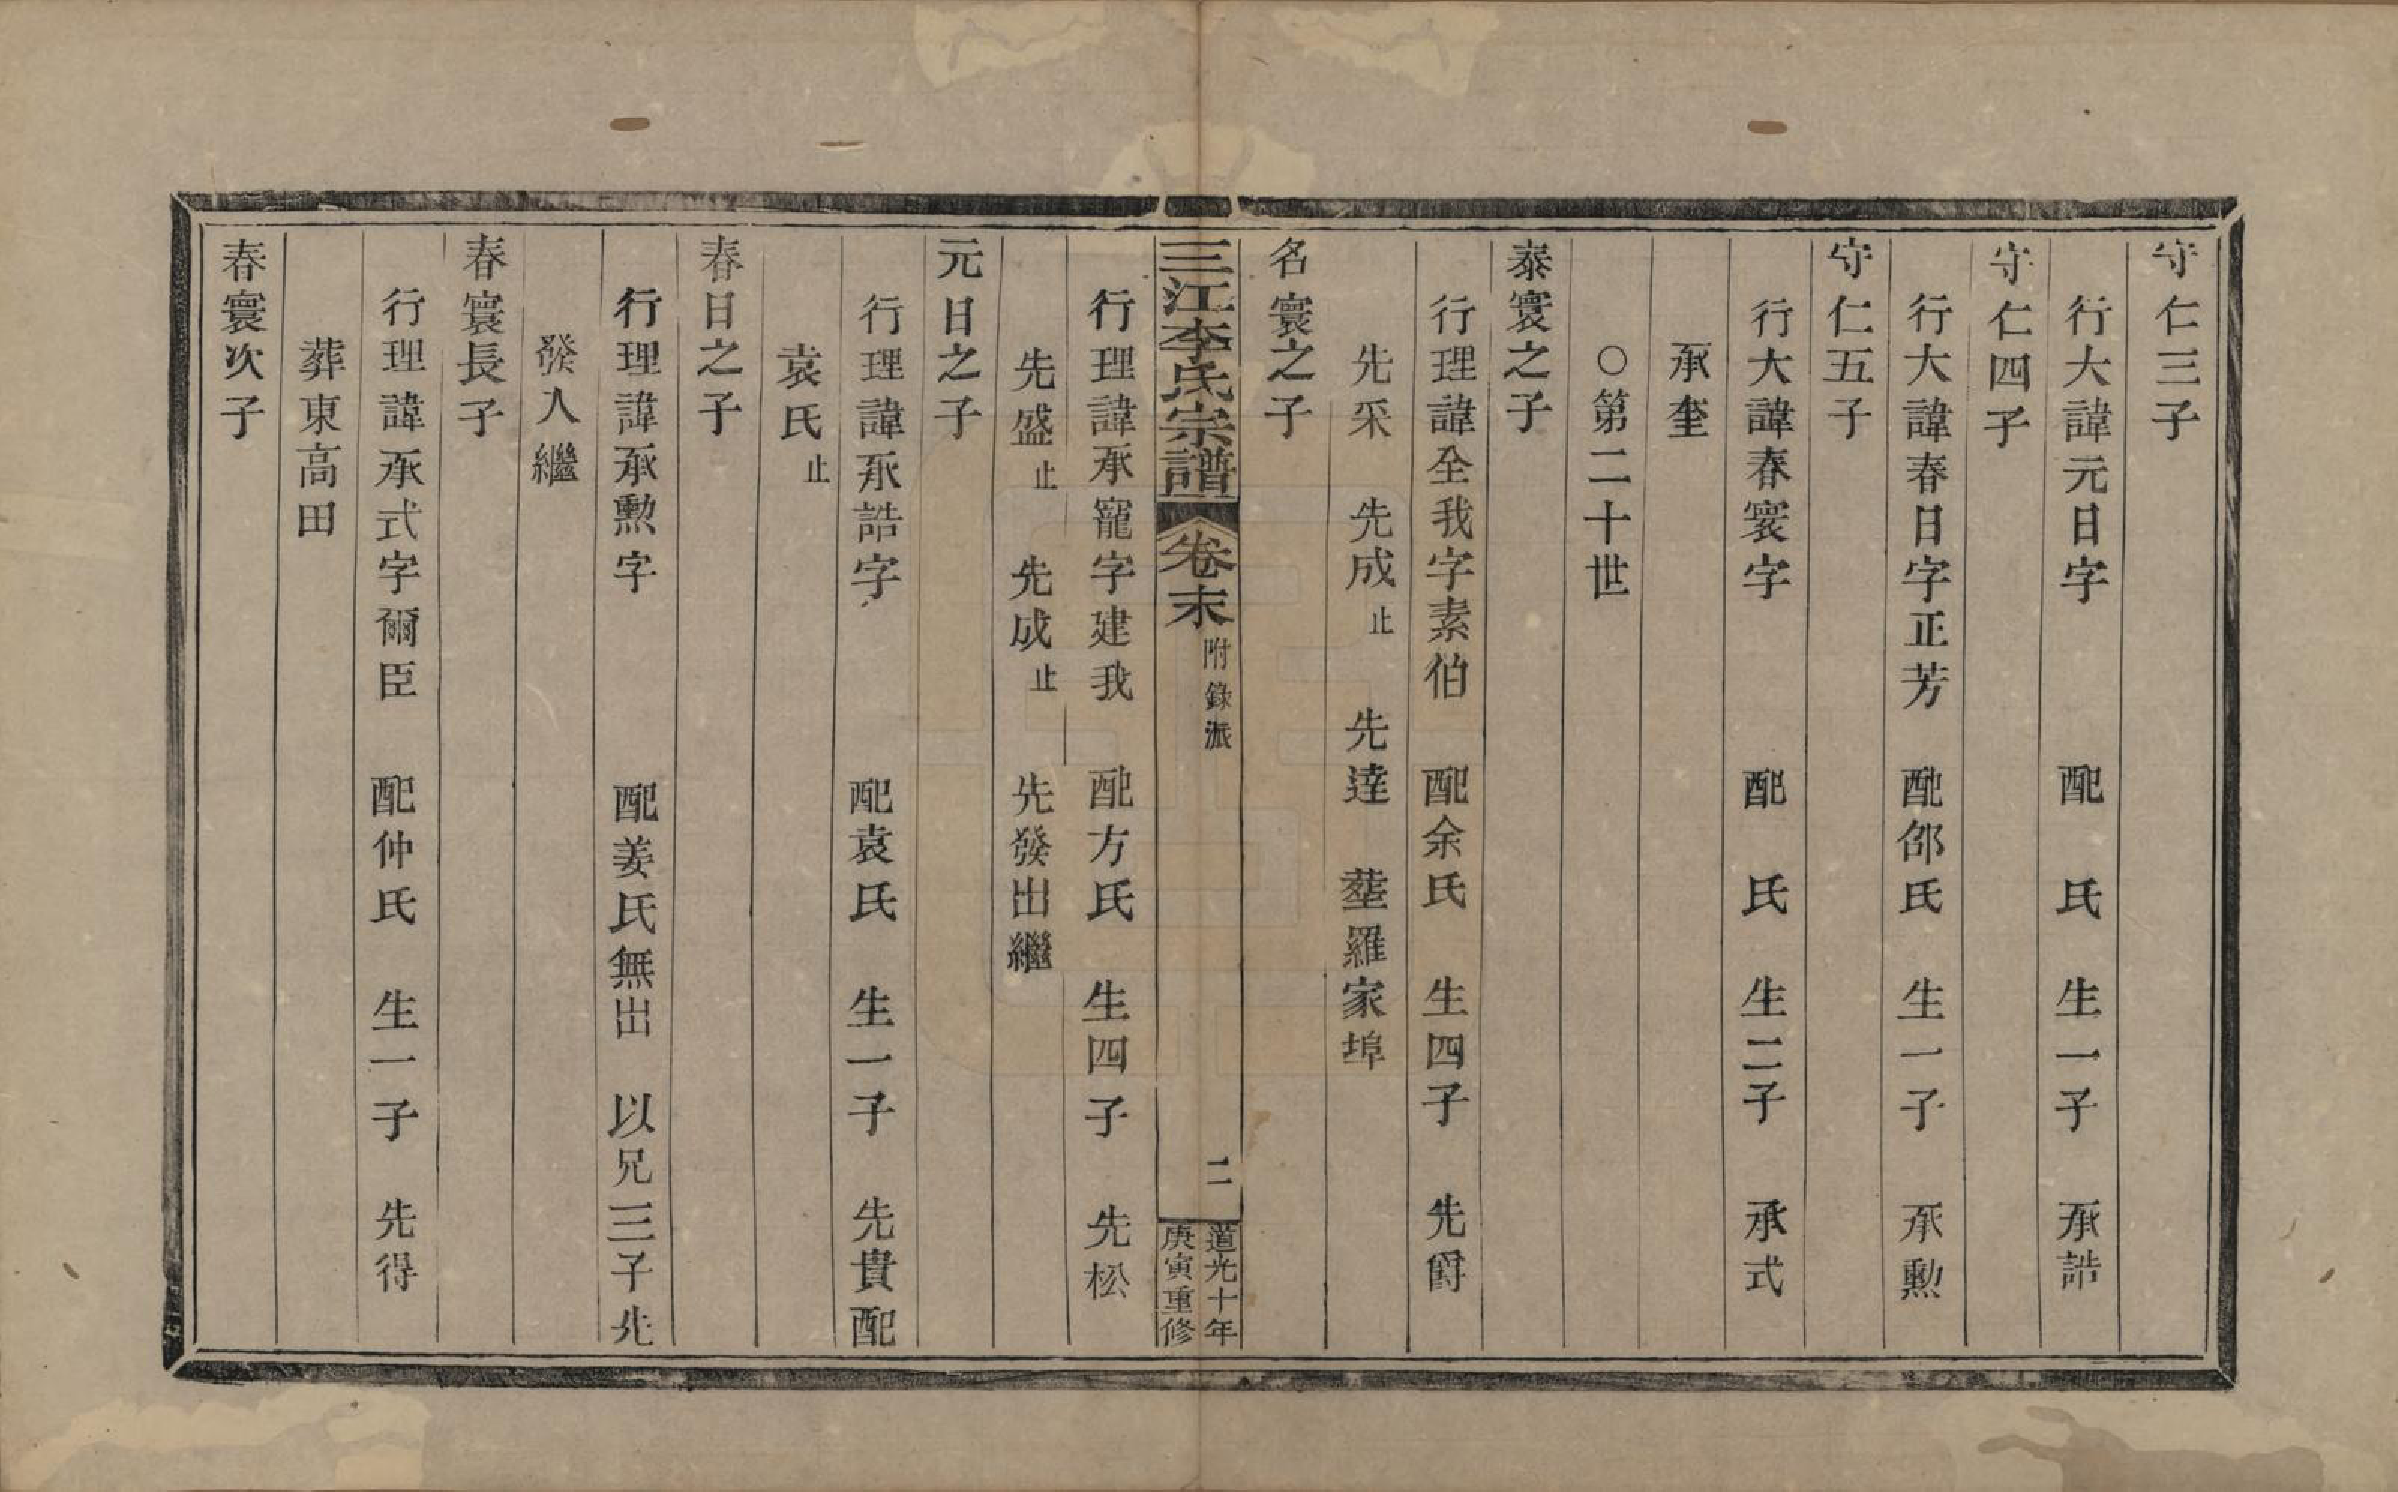 守仁三子
行大諱元日字　配　氏　生一子　承誥
守仁四子
行大諱春日字正芳　配邵氏　生一子　承勲
守仁五子
行大諱春寰字　配　氏　生二子　承式
承奎
○第二十世
泰寰之子
行理諱全我字素伯　配余氏　生四子　先爵
先采　先成止　先達　塟羅家埠
名寰之子
三江李氏宗譜　卷末　附錄派　二　道光十年庚寅重修
行理諱承寵字建我　配方氏　生四子　先松
先盛止　先成止　先發出繼
元日之子
行理諱承誥字　配袁氏　生一子　先貴配
袁氏止
春日之子
行理諱承勲字　配姜氏無出　以兄三子先
發入繼
春寰長子
行理諱承式字爾臣　配仲氏　生一子　先得
葬東高田
春寰次子